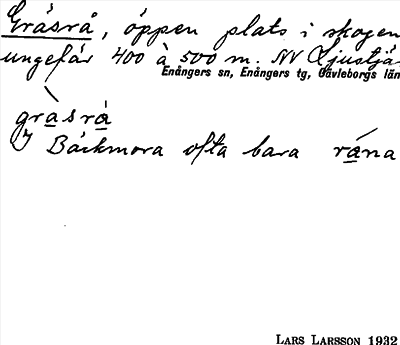 Gräsrå, öppen plats i skogen
ungefär 400 à 500 m. NV Ljustjä
Enångers sn, Enångers tg, Gävleborgs län
gràsrà
I Bäckmora ofta bara rána
LARS LARSSON 1932